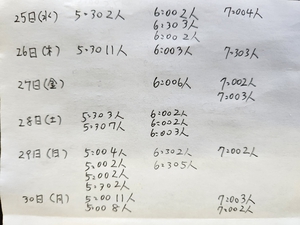 25日(水) 5:30 2人 6:00 2人 7:00 4人
6:30 3人
6:00 2人
26日(木) 5:30 11人 6:00 3人 7:30 3人
27日(金) 6:00 6人 7:00 2人
7:00 3人
28日(土) 5:30 3人 6:00 2人
5:30 7人 6:00 2人
6:00 3人
29日(日) 5:00 4人 6:30 2人 7:00 2人
5:00 2人 6:30 5人
5:00 2人
5:30 2人
30日(月) 5:00 11人 7:00 3人
5:00 8人 7:00 2人